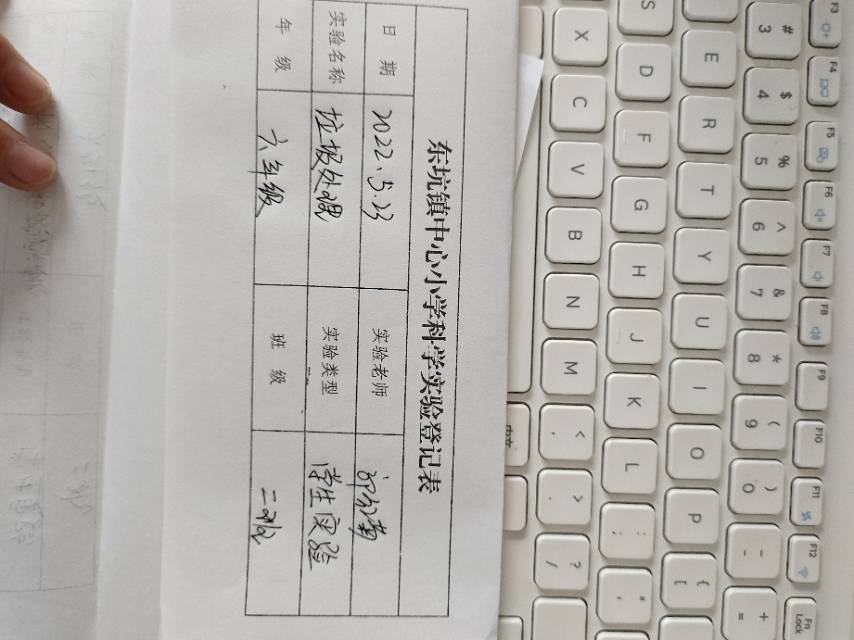 东坑镇中心小学科学实验登记表
日 期 2022.5.23 实验老师
实验名称 垃圾处理 实验类型 学生实验
年 级 六年级 班 级 二班
# 3
$ 4
% 5
^ 6
& 7
* 8
( 9
) 0
- -
+ =
E R T Y U I O P { [
S D F G H J K L : ; " '
X C V B N M < , > . ? /
F3 F4 F5 F6 F7 F8 F9 F10 F11 F12 Fn Lock